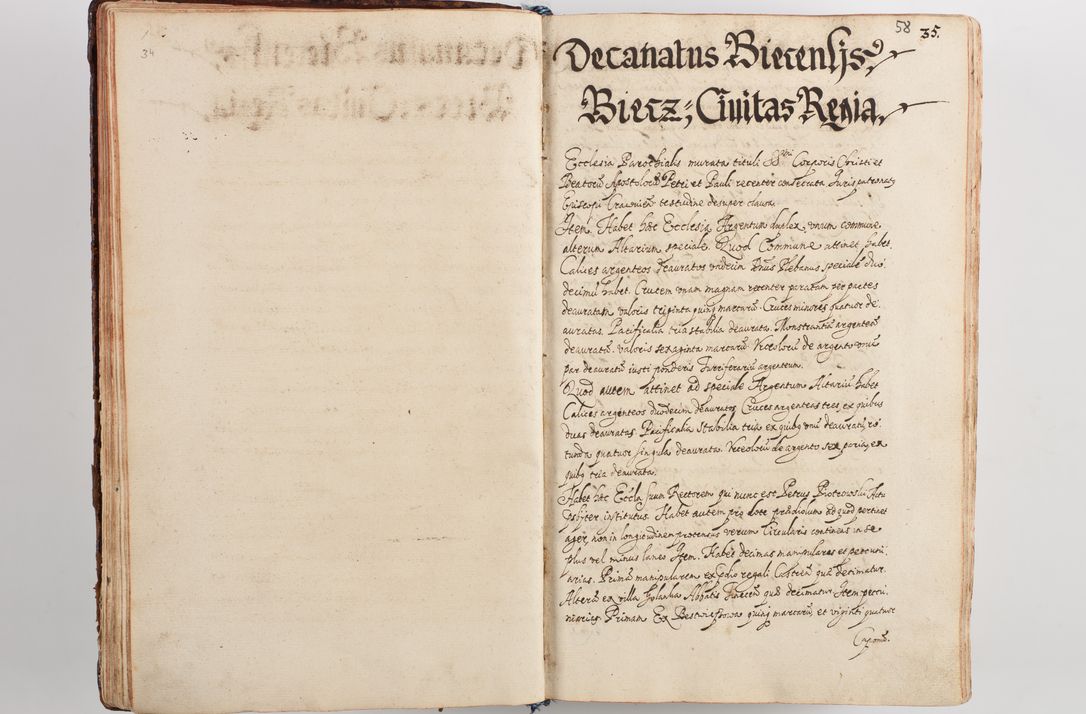 34
58 35.
Decanatus Biecensis
Biecz, Ciuitas Regia
Ecclesia Parochialis murata tituli SSmi Corporis Christi et
Beatorũ Apostolorũ Petri et Pauli recenter consecrata Iuris patronatꝫ
Episcopi Cracouieñ testitudine desuper clausa.
Item Habet hæc Ecclesia Argentum duplex, vnum commune
alterum Altarium speciale. Quod Commune attinet habet.
Calices argenteos deauratos vndecim Plebanus speciale duo
decimũ habet. Crucem vnam magnam recenter paratam per partes
deauratam valoris triginta quinqꝫ marcarũ. Cruces minores quatuor de
auratas. Pacificalia tria stabilia deaurata. Monstrantiã argenteã
deauratã valoris sexaginta marcarũ. Vrceolorũ de argento vnũ
par deauratũ iusti ponderis Turriferariũ argenteum.
Quod autem attinet ad speciale Argentum Altariũ habet
Calices argenteos duodecim deauratos, Cruces argenteas tres, ex quibus
duas deauratas. Pacificalia Stabilia tria ex quibꝫ vnũ deauratũ, ro
tunda quatuor singula deaurata. Vrceolorũ de argento sex paria, ex
quibꝫ tria deaurata.
Habet hæc Eccla suum Rectorem qui nunc est Petrus Piotrowski Actu
psbyter institutus. Habet autem pro dote prædiolum ad quod pertinet
ager, non in longitudinem protensus verum Circularis continens in se
plus vel minus laneo Item. Habet decimas manipulares et pecuni
arias. Primã manipularem ex prædio regali Castreñ quæ decimatur.
Alterã ex villa Abbatis Tinecen quæ decimatur. Item pecu
niarias. Primam Ex quinqꝫ marcarũ et viginti quatuor